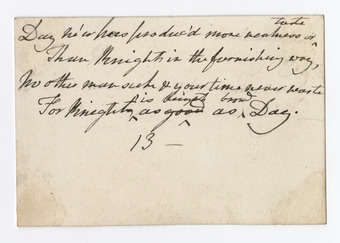 taste
Day ne'er has produc'd more neatness or
Than Knights in the furnishing way,
No other man seek & your time never waste
For Knights is as good as Day.
13 —